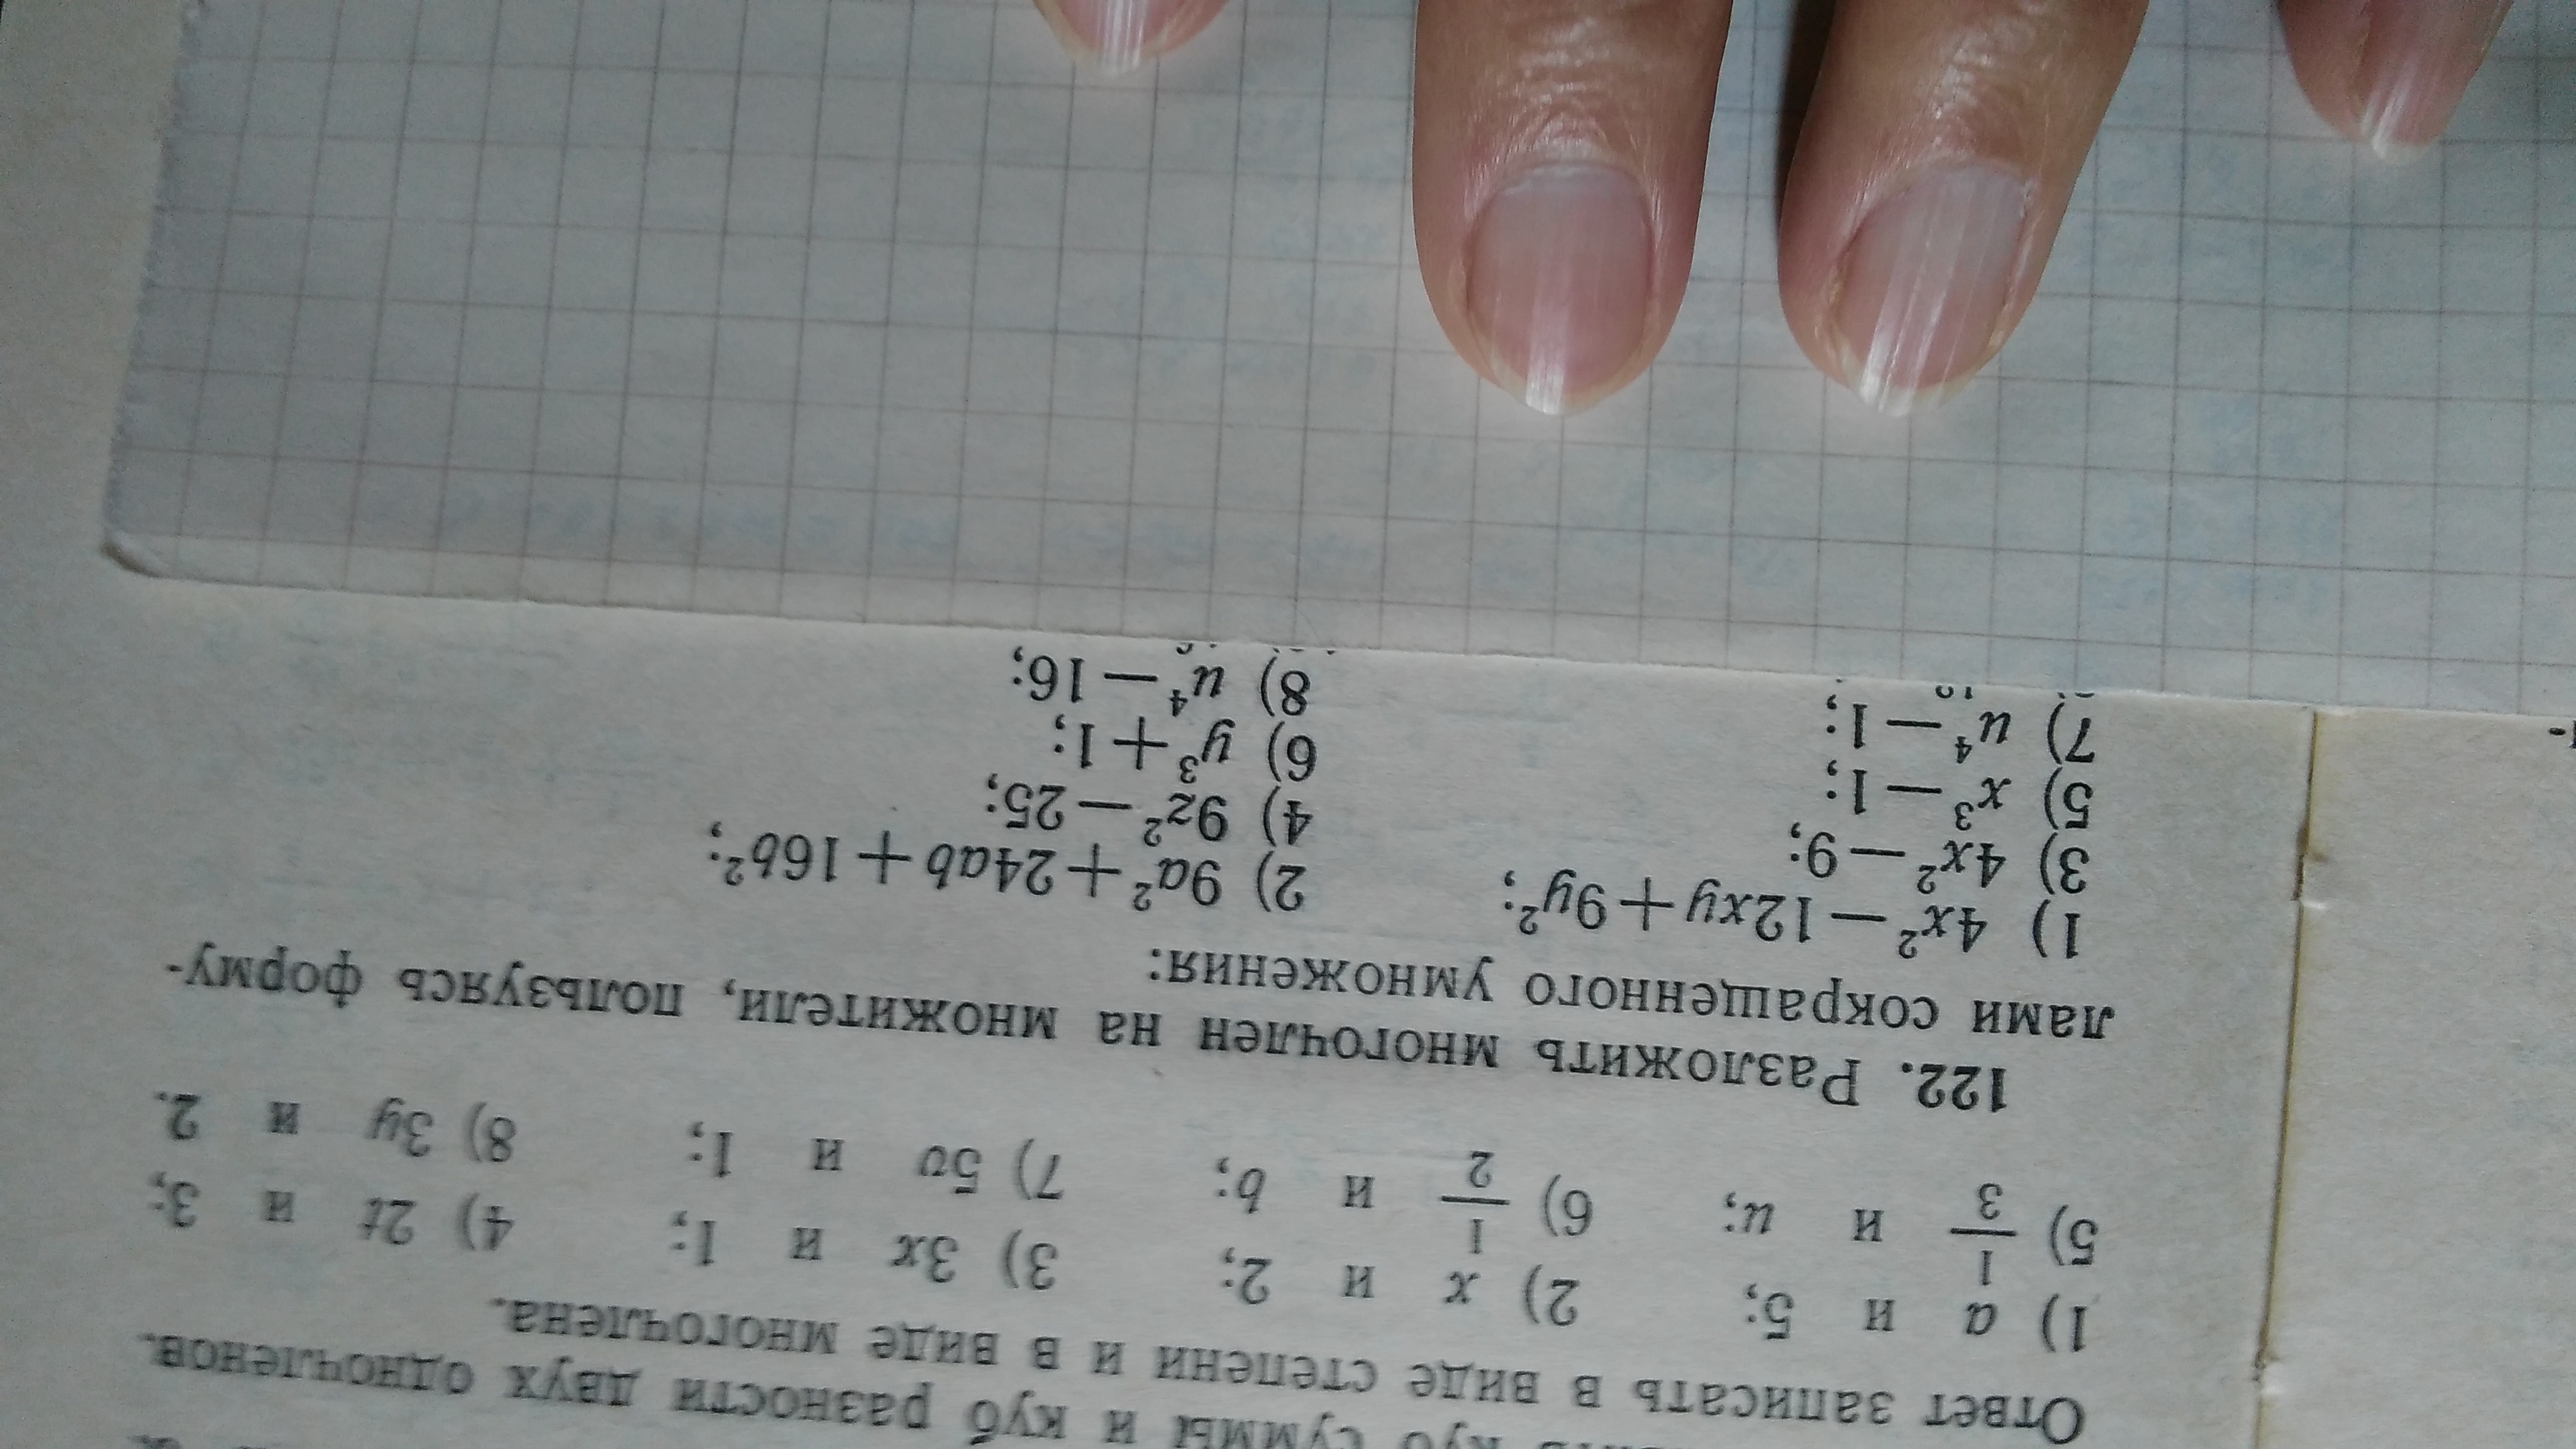 куб суммы и куб разности двух одночленов.
Ответ записать в виде степени и в виде многочлена.
1) a и 5; 2) x и 2; 3) 3x и 1; 4) 2t и 3;
5) 1/3 и u; 6) 1/2 и b; 7) 5v и 1; 8) 3y и 2.
122. Разложить многочлен на множители, пользуясь форму-
лами сокращенного умножения:
1) 4x² — 12xy + 9y²; 2) 9a² + 24ab + 16b²;
3) 4x² — 9; 4) 9z² — 25;
5) x³ — 1; 6) y³ + 1;
7) u⁴ — 1; 8) u⁴ — 16;